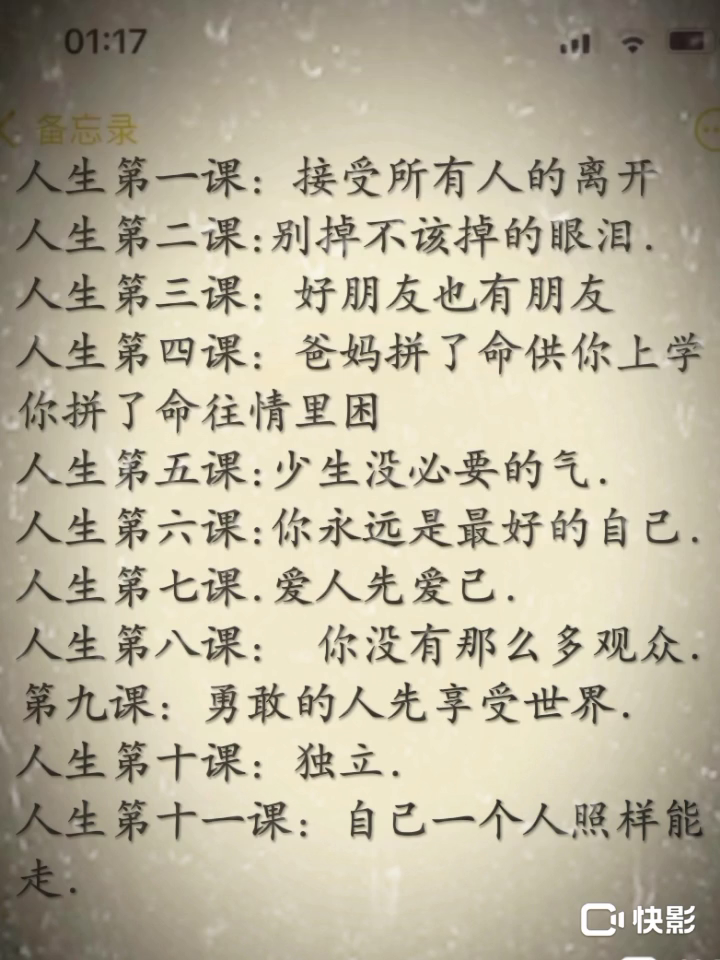 01:17
备忘录
人生第一课：接受所有人的离开
人生第二课:别掉不该掉的眼泪.
人生第三课：好朋友也有朋友
人生第四课：爸妈拼了命供你上学
你拼了命往情里困
人生第五课:少生没必要的气.
人生第六课:你永远是最好的自己.
人生第七课.爱人先爱己.
人生第八课： 你没有那么多观众.
第九课：勇敢的人先享受世界.
人生第十课：独立.
人生第十一课：自己一个人照样能
走.
快影